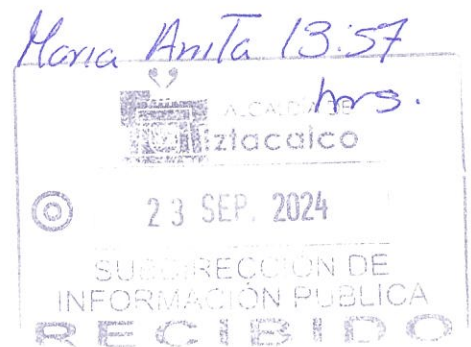 Maria Anita 13:57
hrs.
ALCALDÍA DE
iztacalco
23 SEP. 2024
SUBDIRECCIÓN DE
INFORMACIÓN PUBLICA
RECIBIDO